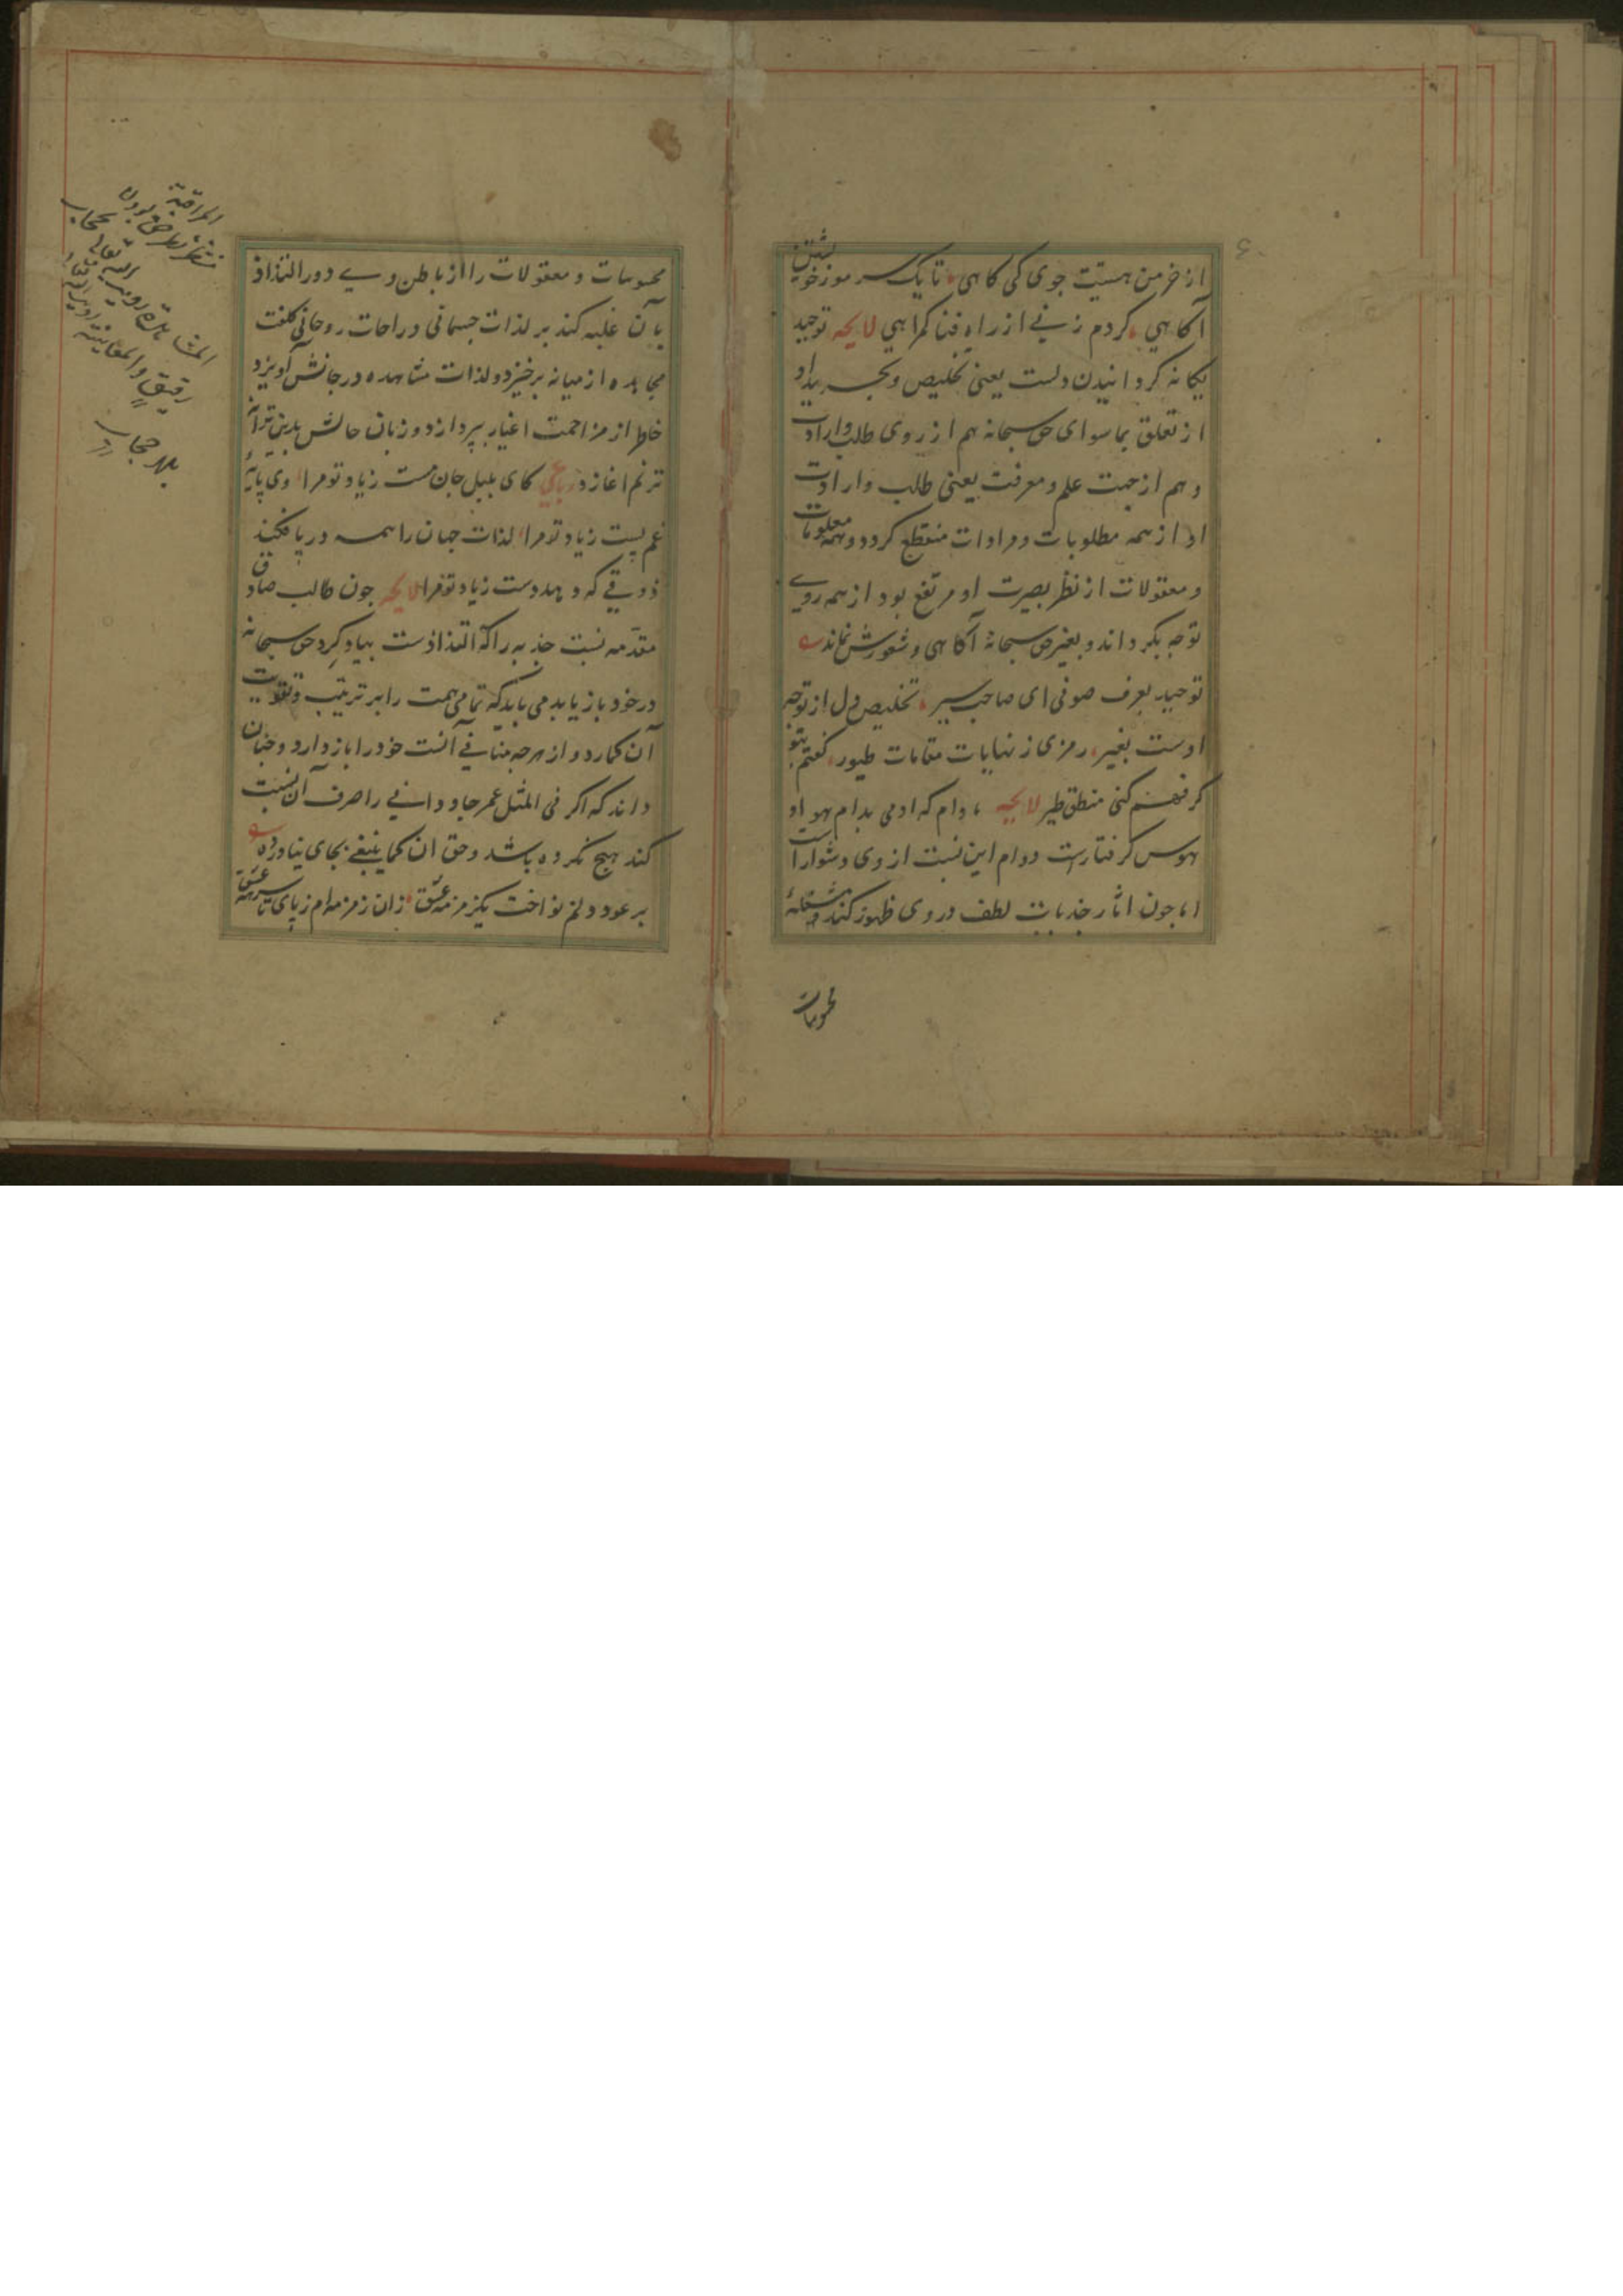 از خرمن هستیت جوی کی کاهی تا یک سر مو ز خویشتن
آکاهی کر دم زنی از راه فنا کمراهی لایحه توحید
یکانه کردانیدن دلست یعنی تخلیص و تجرید او
از تعلق بماسوای حق سبحانه هم از روی طلب و ارادت
و هم از جهت علم و معرفت یعنی طلب و ارادت
او از همه مطلوبات و مرادات منقطع کردد و همه معلومات
و معقولات از نظر بصیرت او مرتفع بود از همه روی
توجه بکرداند و بغیر حق سبحانه آکاهی و شعورش نماند
توحید بعرف صوفی ای صاحب سیر تخلیص دل از توجه
اوست بغیر رمزی ز نهایات مقامات طیور کفتم بتو
کر فهم کنی منطق طیر لایحه مادام که ادمی بدام هوا و
هوس کرفتارست دوام این نسبت از وی دشوار است
اما جون اثار جذبات لطف در وی ظهور کند و مشغلهٔ
محسوسات
محسوسات و معقولات را از باطن وی دور التذاذ
بآن غلبه کند بر لذات جسمانی و راحات روحانی کلفت
مجاهده از میانه برخیزد و لذات مشاهده در جانش آویزد
خاطر از مزاحمت اغیار بپردازد و زبان حالش بدین ترانه
ترنم اغازد رباعی کای بلبل جان مست زیاد تو مرا وی پایهٔ
غم پست زیاد تو مرا لذات جهان را همه در پا فکند
ذوقی که دهد دست زیاد تو مرا لایحه جون طالب صادق
مقدمه نسبت جذبه را که التذاذست بیاد کرد حق سبحانه
در خود بازیابد می باید که تمامی همت را بر تربیت و تقویت
آن کمارد و از هر جه منافی آنست خود را باز دارد و جنان
داند که اکر فی المثل عمر جاودانی را صرف آن نسبت
کند هیج نکرده باشد و حق ان کما ینبغی بجای نیاورده
بر عود دلم نواخت یکزمزمه عشق زان زمزمه ام ز پای تا سر همه عشق
المراقبة